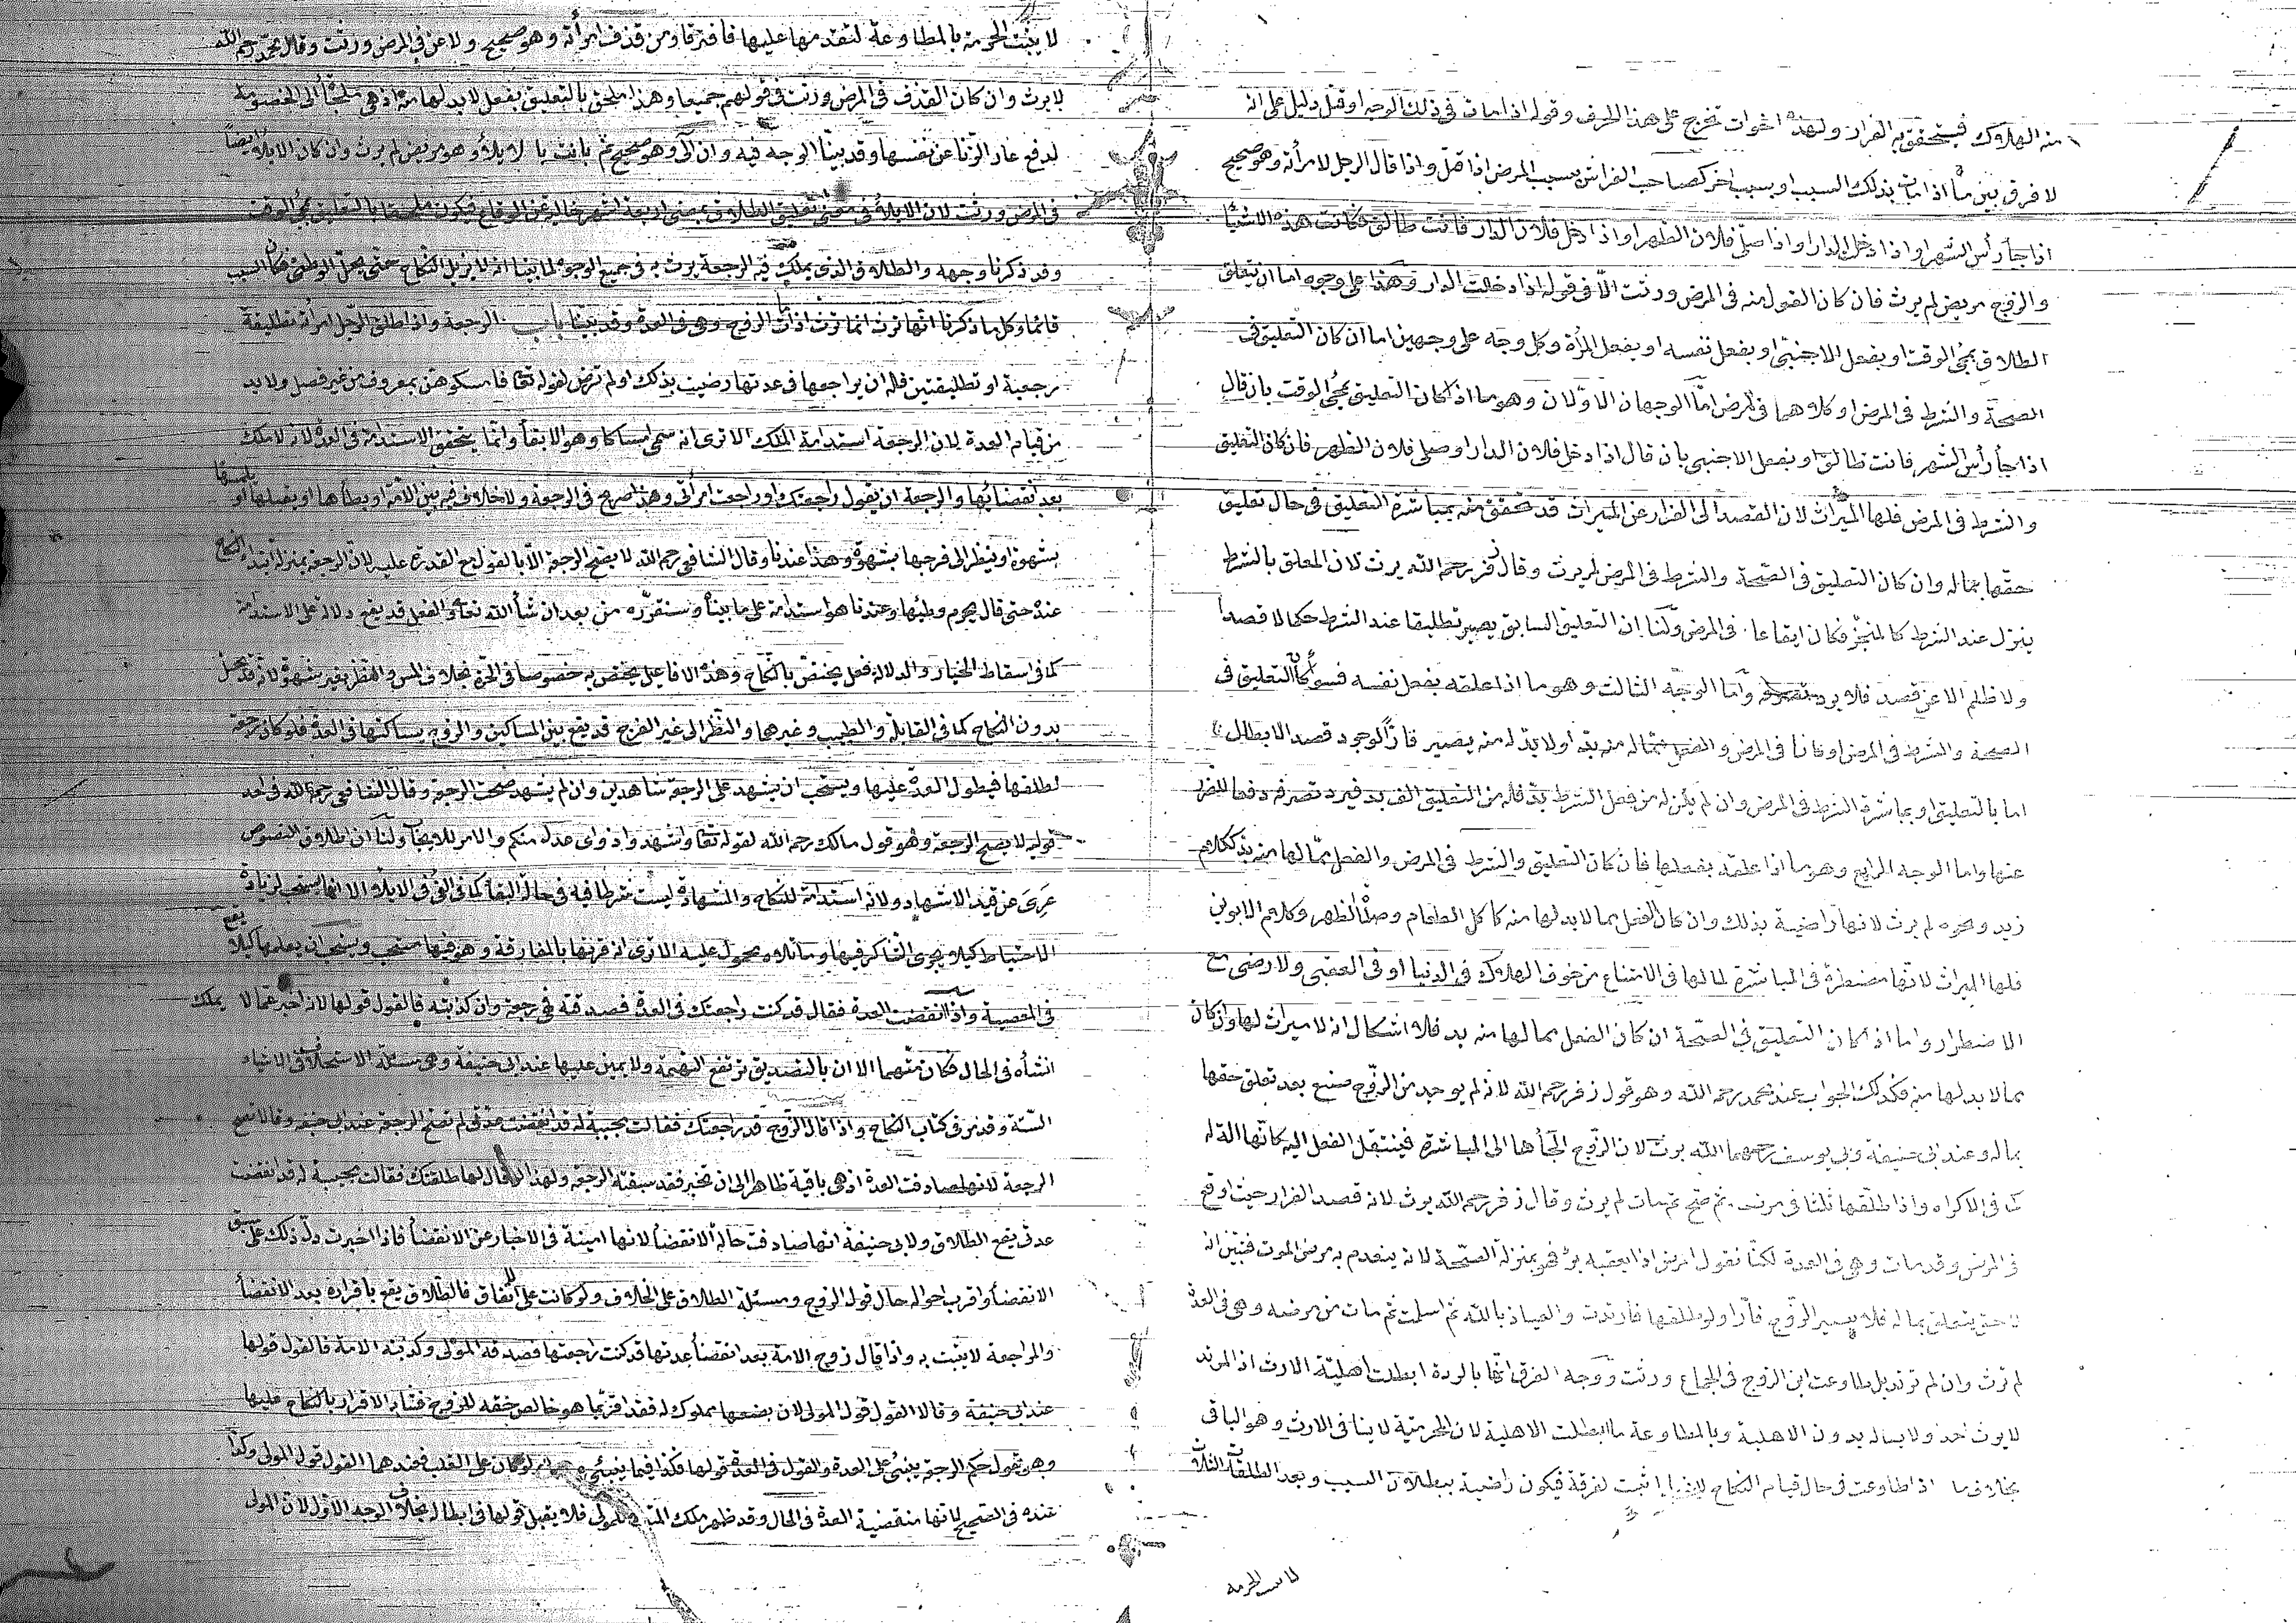 منه الهلاك فيتحقق به الفرار ولهذه اخوات تخرج على هذا الحرف وقوله اذا مات في ذلك الوجه او قتل دليل على انه
لا فرق بين ما اذا مات بذلك السبب او بسبب اخر كصاحب الفراش بسبب المرض اذا قتل واذا قال الرجل لامرأته وهو صحيح
اذا جأ رأس الشهر او اذا دخلت الدار او اذا صلى فلان الظهر او اذا دخل فلان الدار فانت طالق فكانت هذه الاشيأ
والزوج مريض لم يرث فان كان القول منه في المرض ورثت الا في قوله اذا دخلت الدار وهذا على وجوه اما ان يتعلق
الطلاق بمجئ الوقت او بفعل الاجنبي او بفعل نفسه او بفعل المرأة وكل وجه على وجهين اما ان كان التعليق في
الصحة والشرط في المرض او كلاهما في المرض اما الوجهان الاولان وهو ما اذا كان التعليق بمجئ الوقت بان قال
اذا جأ رأس الشهر فانت طالق او بفعل الاجنبي بان قال اذا دخل فلان الدار او صلى فلان الظهر فان كان التعليق
والشرط في المرض فلها الميراث لان القصد الى الفرار عن الميراث قد تحقق منه بمباشرة التعليق في حال تعليق
حقها بماله وان كان التعليق في الصحة والشرط في المرض لم يرث وقال زفر رحمه الله يرث لان المعلق بالشرط
ينزل عند الشرط كالمنجز فكان ايقاعا في المرض ولنا ان التعليق السابق يصير تطليقا عند الشرط حكما لا قصدا
ولا ظلم الا عن قصد فلا يرد تصرفه واما الوجه الثالث وهو ما اذا علقه بفعل نفسه فسوأ كان التعليق في
الصحة والشرط في المرض او كانا في المرض والفعل مماله منه بد او لا بد له منه يصير فارا لوجود قصد الابطال
اما بالتعليق او بمباشرة الشرط في المرض وان لم يكن له من فعل الشرط بد فله من التعليق الف بد فيرد تصرفه دفعا للضرر
عنها واما الوجه الرابع وهو ما اذا علقه بفعلها فان كان التعليق والشرط في المرض والفعل مما لها منه بد ككلام
زيد ونحوه لم يرث لانها راضية بذلك وان كان الفعل مما لا بد لها منه كاكل الطعام وصلاة الظهر وكلام الابوين
فلها الميراث لانها مضطرة في المباشرة لما لها في الامتناع من خوف الهلاك في الدنيا او في العقبى ولا رضى مع
الاضطرار واما اذا كان التعليق في الصحة ان كان الفعل مما لها منه بد فلا اشكال انه لا ميراث لها وان كان
مما لا بد لها منه فكذلك الجواب عند محمد رحمه الله وهو قول زفر رحمه الله لانه لم يوجد من الزوج صنع بعد تعلق حقها
بماله وعند ابي حنيفة وبي يوسف رحمهما الله يرث لان الزوج الجأها الى المباشرة فينتقل الفعل اليه كانها الة له
ك في الاكراه واذا طلقها ثلثا في مرضه ثم صح ثم مات لم يرث وقال زفر رحمه الله يرث لانه قصد الفرار حيث اوقع
في المرض وقد مات وهي في العدة لكنا نقول المرض اذا يعقبه برؤ فهو بمنزلة الصحة لانه ينعدم به مرض الموت فتبين انه
لا حق يتعلق بماله فلا يصير الزوج فارا ولو طلقها فارتدت والعياذ بالله ثم اسلمت ثم مات من مرضه وهي في العدة
لم ترث وان لم ترتد بل طاوعت ابن الزوج في الجماع ورثت ووجه الفرق انها بالردة ابطلت اهلية الارث اذ المرتد
لا يرث احد ولا بسا له بدون الاهلية وبالمطاوعة ما ابطلت الاهلية لان المحرمية لا ينافي الارث وهو الباقي
بخلاف ما اذا طاوعت في حال قيام النكاح لانها اثبت لفرقة فيكون راضية ببطلان السبب وبعد الطلقات الثلاث
لا يثبت الحرمة بالمطاوعة لتقدمها عليها فافترقا ومن قذف امرأته وهو صحيح ولاعن في المرض ورثت وقال محمد رحمه الله
لا يرث وان كان القذف في المرض ورثت في قولهم جميعا وهذا ملحق بالتعليق بفعل لا بد لها منه اذ هي ملجئة الى الخصومة
لدفع عار الزنا عن نفسها وقد بينا الوجه فيه وان آلى وهو صحيح ثم بانت بالايلأ وهو مريض لم يرث وان كان الايلأ ايضا
في المرض ورثت لان الايلأ في معنى تعليق الطلاق بمضي اربعة اشهر خالية عن الوقاع فيكون ملحقا بالتعليق بمجئ الوقت
وقد ذكرنا وجهه والطلاق الذي يملك فيه الرجعة يرث به في جميع الوجوه لما بينا انه لا يزيل النكاح حتى يحل الوطئ فكان السبب
قائما وكل ما ذكرنا انها ترث انما ترث اذا مات الزوج وهي في العدة وقد بينا باب الرجعة واذا طلق الرجل امرأته تطليقة
رجعية او تطليقتين فله ان يراجعها في عدتها رضيت بذلك او لم ترض لقوله تعا فامسكوهن بمعروف من غير فصل ولا بد
من قيام العدة لان الرجعة استدامة الملك الا ترى انه سمى امساكا وهو الابقأ وانما يتحقق الاستدامة في العدة لانه لا ملك
بعد انقضائها والرجعة ان يقول راجعتك او راجعت امرأتي وهذا صريح في الرجعة ولا خلاف فيه بين الائمة او يطأها او يقبلها او يلمسها
بشهوة او ينظر الى فرجها بشهوة وهذا عندنا وقال الشافعي رحمه الله لا يصح الرجعة الا بالقول مع القدرة عليه لان الرجعة بمنزلة ابتدأ النكاح
عنده حتى قال يحرم وطئها وعندنا هو استدامة على ما بيناه وسنقرره من بعد ان شأ الله تعا والفعل قد يقع دلالة على الاستدامة
كما في اسقاط الخيار والدلالة فعل يختص بالنكاح وهذه الافاعيل يختص به خصوصا في الحرة بخلاف المس والنظر بغير شهوة لانه قد يحل
بدون النكاح كما في القابلة والطبيب وغيرهما والنظر الى غير الفرج قد يقع بين المساكين والزوج يساكنها في العدة فلو كان رجعة
لطلقها فيطول العدة عليها ويستحب ان يشهد على الرجعة شاهدين وان لم يشهد صحت الرجعة وقال الشافعي رحمه الله في احد
قوليه لا يصح الرجعة وهو قول مالك رحمه الله لقوله تعا واشهدوا ذوى عدل منكم والامر للايجاب ولنا ان طلاق النصوص
عرى عن قيد الاشهاد ولانه استدامة للنكاح والشهادة ليست شرطا فيه في حالة البقأ كما في الفئ في الايلأ الا انها يستحب لزيادة
الاحتياط كيلا يجرى التناكر فيها وما تلاه محمول عليه الا ترى انه قرنها بالمفارقة وهو فيها مستحب ويستحب ان يعلمها كيلا يقع
في المعصية واذا انقضت العدة فقال قد كنت راجعتك في العدة فصدقته فهي رجعة وان كذبته فالقول قولها لانه اخبر عما لا يملك
انشأه في الحال فكان متهما الا ان بالتصديق ترتفع التهمة ولا يمين عليها عند ابي حنيفة وهي مسئلة الاستحلاف في الاشيأ
الستة وقد مر في كتاب النكاح واذا قال الزوج قد راجعتك فقالت مجيبة له قد انقضت عدتي لم تصح الرجعة عند ابي حنيفة وقالا تصح
الرجعة لانها صادفت العدة اذ هي باقية ظاهرا الى ان تخبر فقد سبقته الرجعة ولهذا لو قال لها طلقتك فقالت مجيبة له قد انقضت
عدتي يقع الطلاق ولابي حنيفة انها صادفت حالة الانقضأ لانها امينة في الاخبار عن الانقضأ فاذا اخبرت دل ذلك على سبق
الانقضأ واقرب احواله حال قول الزوج ومسئلة الطلاق على الخلاف ولو كانت على الاتفاق فالطلاق يقع باقراره بعد الانقضأ
والمراجعة لا يثبت به واذا قال زوج الامة بعد انقضأ عدتها قد كنت راجعتها فصدقه المولى وكذبته الامة فالقول قولها
عند ابي حنيفة وقالا القول قول المولى لان بضعها مملوك له فقد اقر بما هو خالص حقه للزوج فشابه الاقرار بالنكاح عليها
وهو يقول حكم الرجعة يبتنى على العدة والقول في العدة قولها فكذا فيما يبتنى عليها ولو كان على القلب فعندهما القول قول المولى وكذا
عنده في الصحيح لانها منقضية العدة في الحال وقد ظهر ملك المتعة للمولى فلا يقبل قولها في ابطاله بخلاف الوجه الاول لان المولى